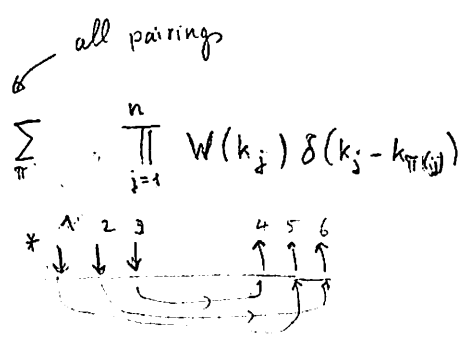 all pairings
n
∑ ∏ W(k_j) δ(k_j - k_π(j))
π j=1
* 1 2 3 4 5 6